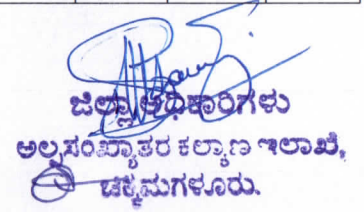 ಜಿಲ್ಲಾ ಅಧಿಕಾರಿಗಳು
ಅಲ್ಪಸಂಖ್ಯಾತರ ಕಲ್ಯಾಣ ಇಲಾಖೆ,
ಚಿಕ್ಕಮಗಳೂರು.